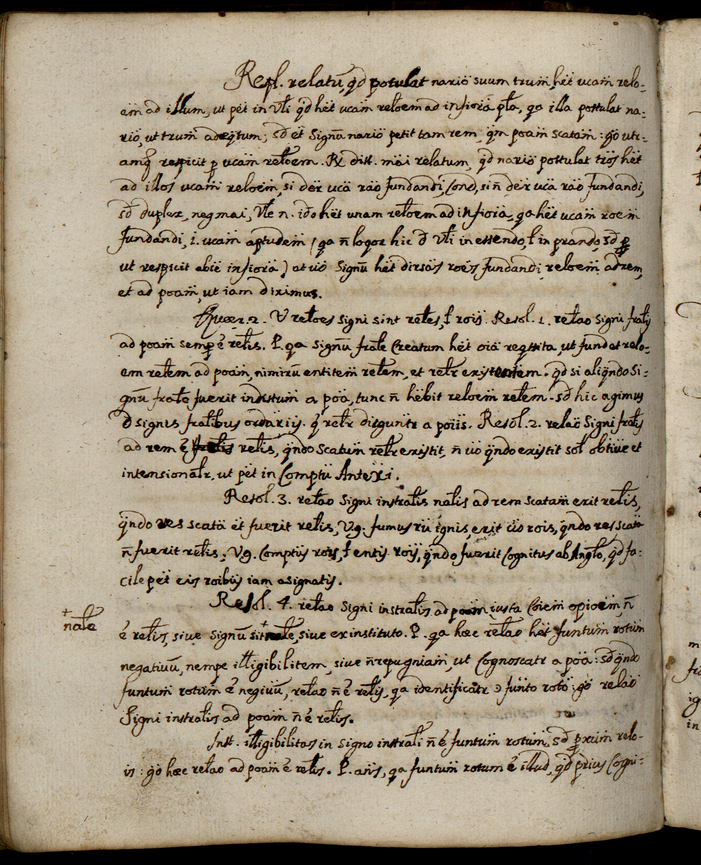 Repl. relatū qd postulat nariō suum trum, hēt ucam relo-
em ad illum, ut pēt in Vli qd hēt ucam reloem ad infiora pla, qa illa postulat na-
riō, ut trum adeqtum; sd et Signū nariō petit tam rem, qm poam scatam: go utr-
amq respicit p ucam reloem. R dist. mai relatum, qd nariō postulat tios hēt
ad illos ucam reloem, si dēr ucā raō fundandi, Cond, si n dēr ucā raō fundandi,
sd duplex, neg mai, Vle n. idō hēt unam reloem ad infiora, qa hēt ucam roem
fundandi, i. ucam aptudem (qa n loqor hic d Vli in essendo, l in prando, sd p
ut respicit abiē infiora) at uō Signū hēt dirsas roēs fundandi reloem, ad rem,
et ad poam, ut iam diximus.
Quaer. 2. V reloes Signi sint reles, l rois. Resol. 1. relaō Signi fralis
ad poam semp ē relis. P. qa Signū frale Creatum hēt oia reqsita, ut fundat relo-
em relem ad poam, nimirū entitem relem, et relr existentem. qd si aliqndo Si-
gnū frale fuerit indistum a poa, tunc n hēbit reloem relem. sd hic agimus
d signis fralibus ordariis. q relr distguntr a poiis. Resol. 2. relaō Signi fralis
ad rem ē relis, qndo Scatum relr existit, n uō qndo existit sol obtiue et
intensionalr, ut pēt in Comptu AnteXi.
Resol. 3. relaō Signi instralis nalis ad rem scatam erit relis,
qndo res scata ēt fuerit relis, Vg. fumus rū ignis, erit uō rois, qndo res scata
n fuerit relis; Vg. Comptus rois, l entis rois, qndo fuerit Cognitus ab Anglo, qd fa-
cile pēt eis roibus iam asignatis.
Resol. 4. relaō Signi instralis ad poam iusta Coiem opioem, n
+
nale
ē relis, siue Signū sit + siue ex instituto. P. qa hec relaō hēt funtum rotum
negatiuū, nempe illigibilitem, siue nrepugniam, ut Cognoscatr a poa: sd qndo
funtum rotum ē negiuū, relaō n ē relis, qa identificatr ɔ funto rotō: go relaō
Signi instralis ad poam n ē relis.
Inst. illigibilitas in signo instrali n ē funtum rotum, sd pxium relo-
is: go hec relaō ad poam ē relis. P. ans, qa funtum rotum ē illud, qd prius Cogni-